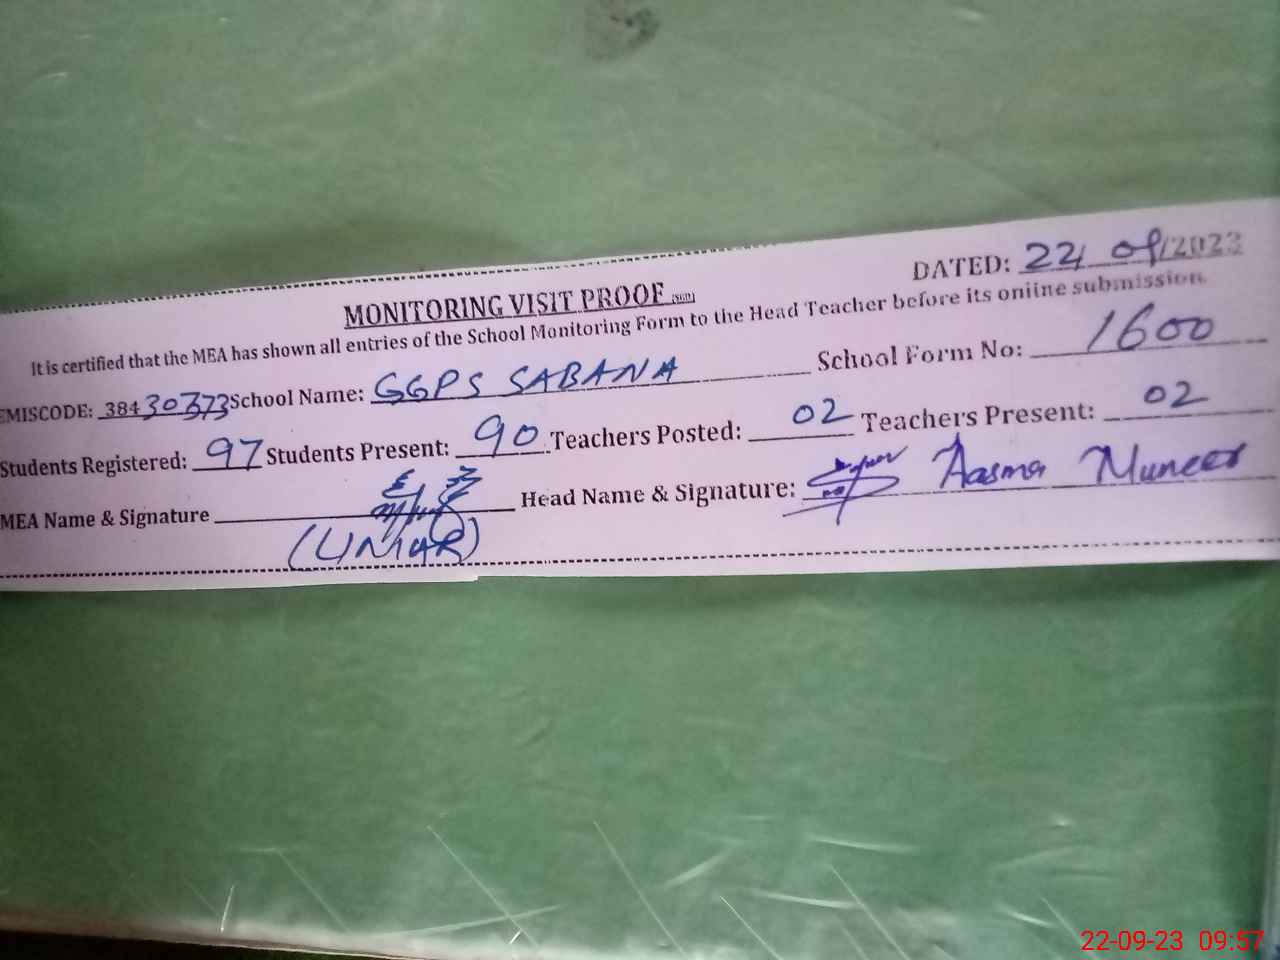 DATED: 22/09/2023
MONITORING VISIT PROOF
It is certified that the MEA has shown all entries of the School Monitoring Form to the Head Teacher before its online submission.
EMISCODE: 38430373 School Name: GGPS SABANA School Form No: 1600
Students Registered: 97 Students Present: 90 Teachers Posted: 02 Teachers Present: 02
MEA Name & Signature Head Name & Signature: Aasma Muneer
(UMAR)
22-09-23 09:57